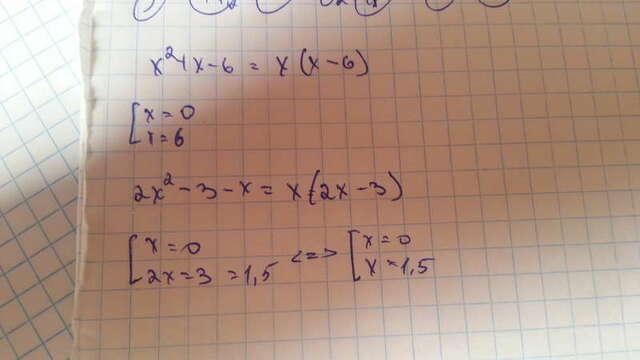 x²+x-6 = x(x-6)
[x=0
x=6
2x²-3-x = x(2x-3)
[x=0
2x=3 =1,5 <=> [x=0
x=1,5